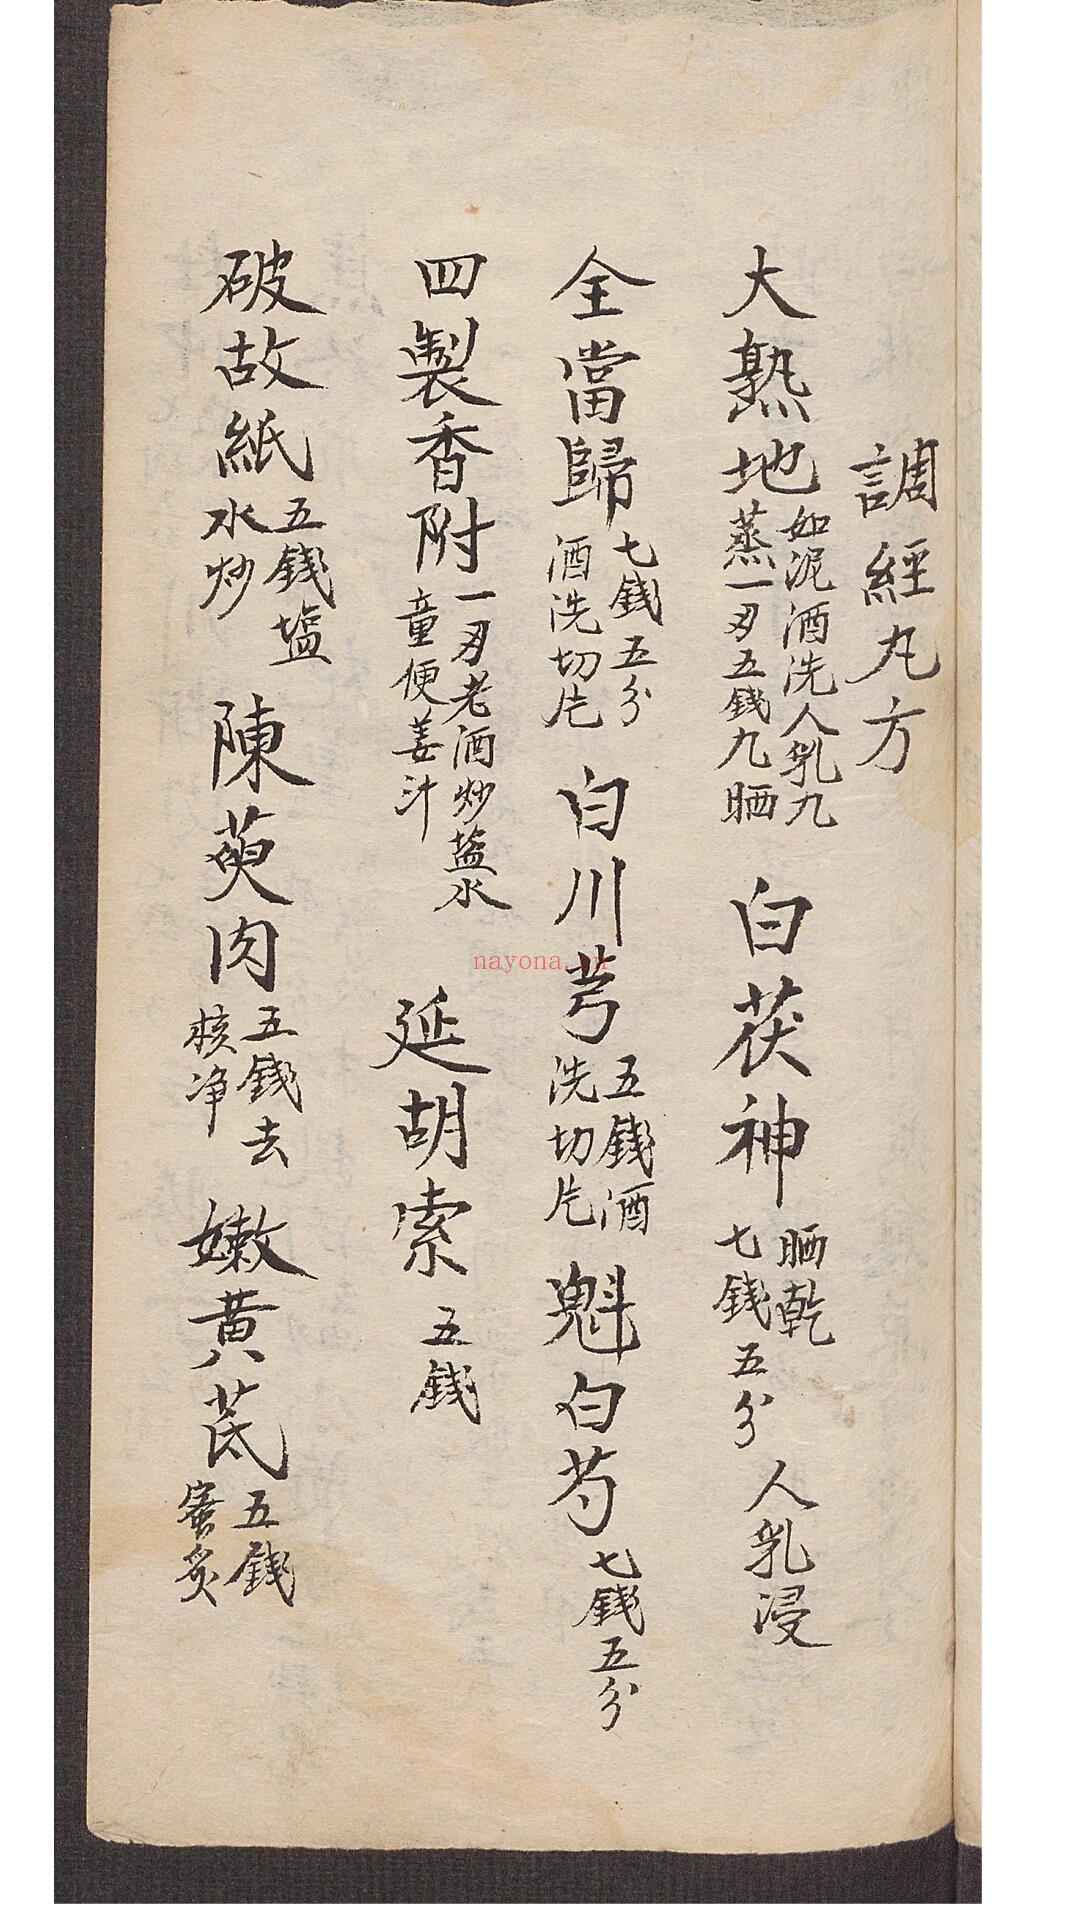 調經丸方
大熟地如泥酒洗人乳九蒸一刄五錢九晒 白茯神晒乾七錢五分人乳浸
全當歸七錢五分酒洗切片 白川芎五錢酒洗切片 魁白芍七錢五分
四製香附一刄老酒炒盐水童便姜汁 延胡索五錢
破故紙五錢塩水炒 陳萸肉五錢去核净 嫩黄芪五錢蜜炙
nayona.cn